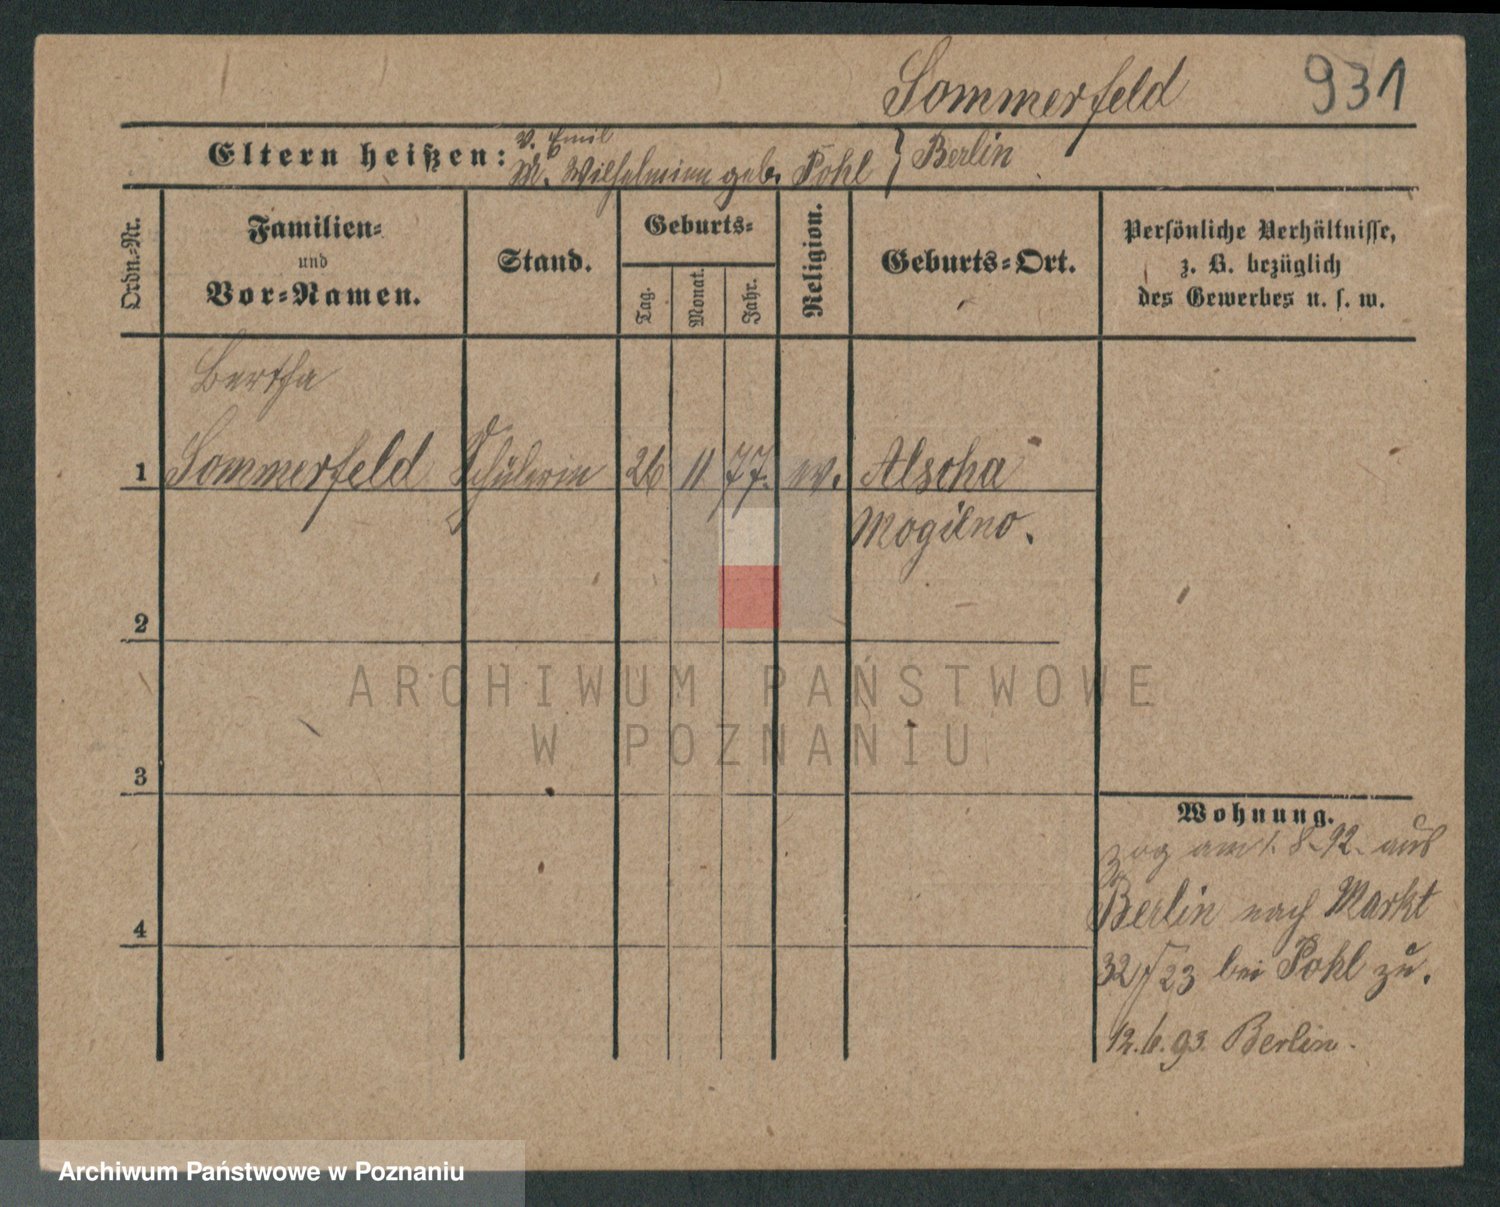 Sommerfeld 931
Eltern heißen: V. Emil
M. Wilhelmine geb. Pohl } Berlin
Ordn.-Nr.
Familien-
und
Vor-Namen.
Stand.
Geburts-
Tag.
Monat.
Jahr.
Religion.
Geburts-Ort.
Persönliche Verhältnisse,
z. B. bezüglich
des Gewerbes u. s. w.
Bertha
1 Sommerfeld Schülerin 26 11 77. ev. Alscha
Mogilno.
2
ARCHIWUM PAŃSTWOWE
W POZNANIU
3
4
Wohnung.
zog am 1. 8. 92. aus
Berlin nach Markt
32/23 bei Pohl zu.
12. 6. 93. Berlin.
Archiwum Państwowe w Poznaniu